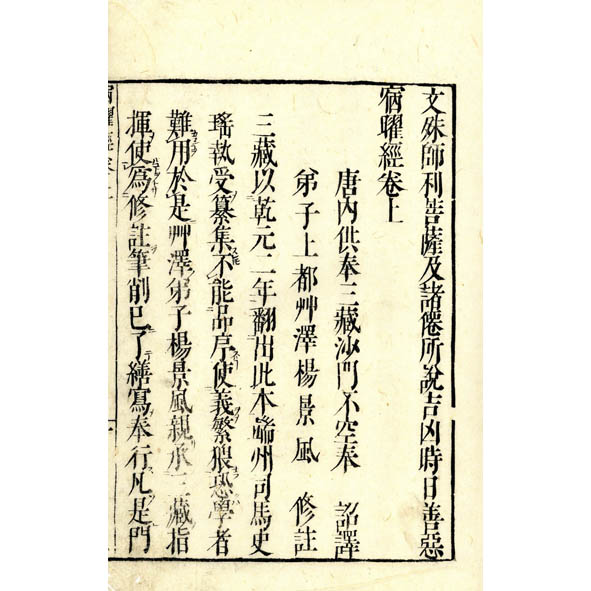 文殊師利菩薩及諸僊所說吉凶時日善惡
宿曜經卷上
唐內供奉三藏沙門不空奉　詔譯
弟子上都艸澤楊景風　修註
三藏以乾元二年翻出此本端州司馬史
瑤執受纂集不能品序使義繁猥恐學者
難用於是艸澤弟子楊景風親承三藏指
揮使為修註筆削已了繕寫奉行凡是門
宿曜經卷上